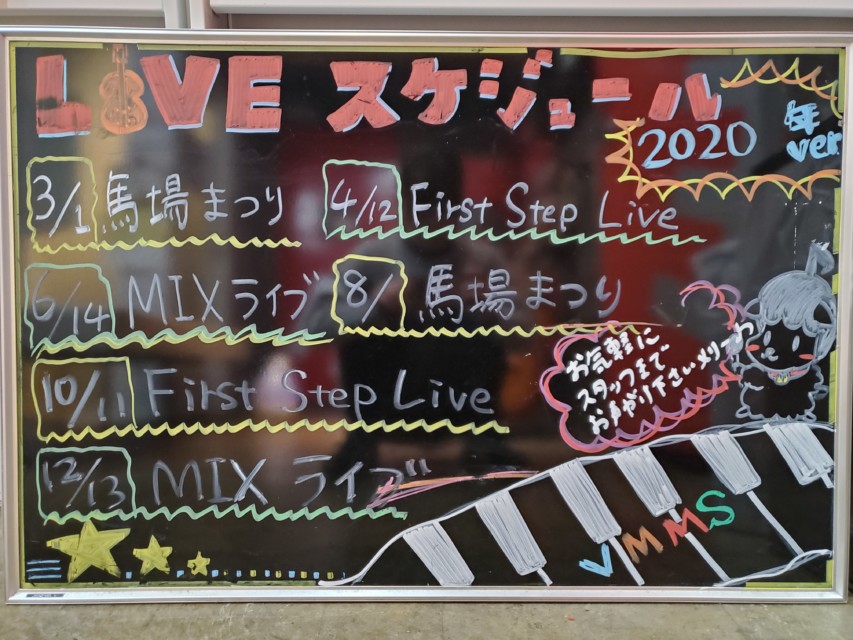 LIVE スケジュール
2020 年
ver
3/1 馬場まつり 4/12 First Step Live
6/14 MIXライブ 8/ 馬場まつり
お気軽に
スタッフまで
下さいメリーわ
10/11 First Step Live
12/13 MIX ライブ
VMMS